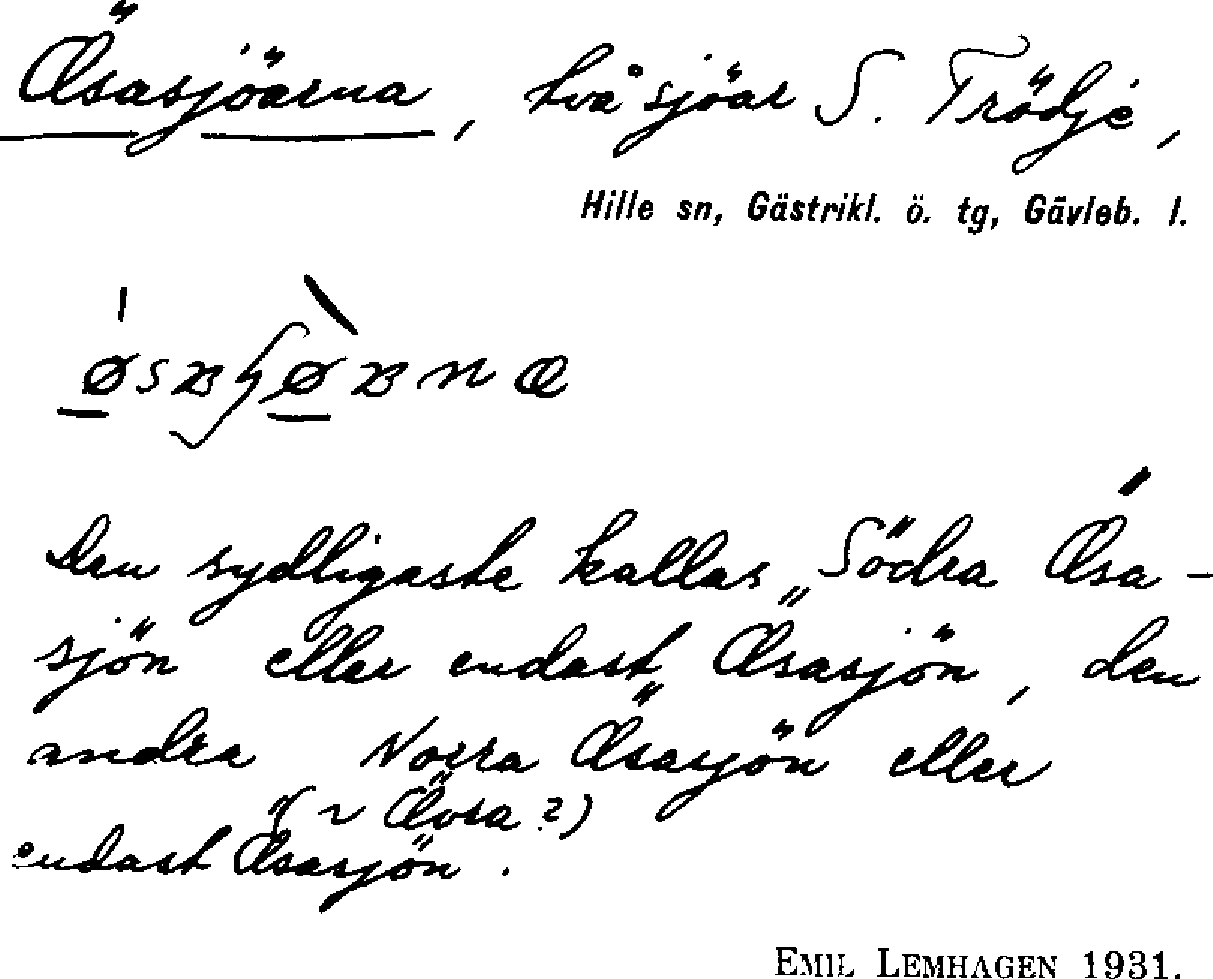 Ösasjöarna, två sjöar S. Trödje,
Hille sn, Gästrikl. ö. tg, Gävleb. l.
Den sydligaste kallas Södra Ösa-
sjön eller endast Ösasjön, den
andra Norra Ösasjön eller
(~ Övra?)
endast Ösasjön.
EMIL LEMHAGEN 1931.